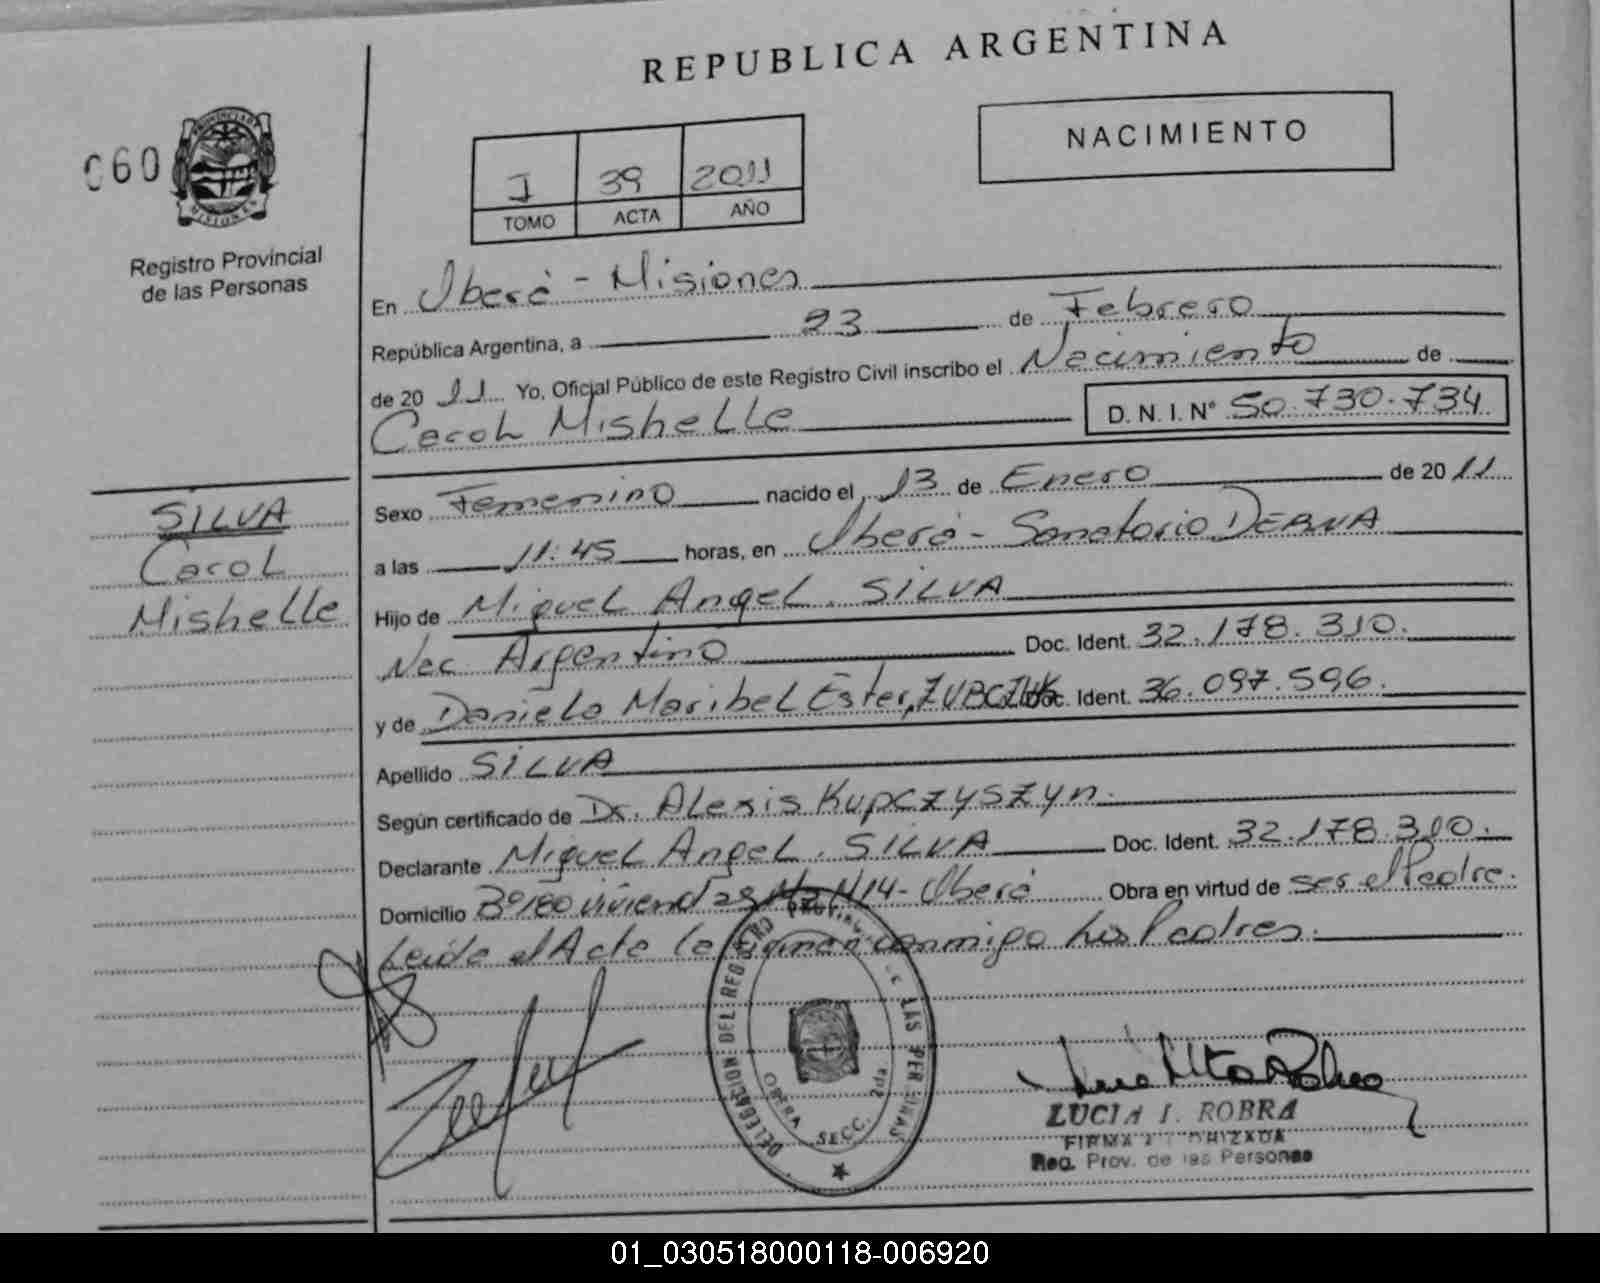 REPUBLICA ARGENTINA
NACIMIENTO
060
PROVINCIA DE
MISIONES
I 39 2011
TOMO ACTA AÑO
Registro Provincial
de las Personas
En Oberá - Misiones
República Argentina, a 23 de Febrero
de 20 11 Yo, Oficial Público de este Registro Civil inscribo el Nacimiento de
Carol Mishelle D. N. I. N° 50.730.734
SILVA
Carol
Mishelle
Sexo Femenino nacido el 13 de Enero de 20 11
a las 11:45 horas, en Oberá - Sanatorio
Hijo de Miguel Angel. SILVA
Nac. Argentino Doc. Ident. 32.178.310.
y de Daniela Maribel Ester, Doc. Ident. 36.097.596.
Apellido SILVA
Según certificado de Dr. Alexis Kupczyszyn.
Declarante Miguel Angel. SILVA Doc. Ident. 32.178.310.
Domicilio B° 180 viviend - Oberá Obra en virtud de ser el Padre.
Leída el Acta la firman conmigo los Padres.
DELEGACION DEL REGISTRO PROVINCIAL DE LAS PERSONAS
OBERA SECC. 2da
LUCIA I. ROBRA
FIRMA AUTORIZADA
Reg. Prov. de las Personas
01_030518000118-006920